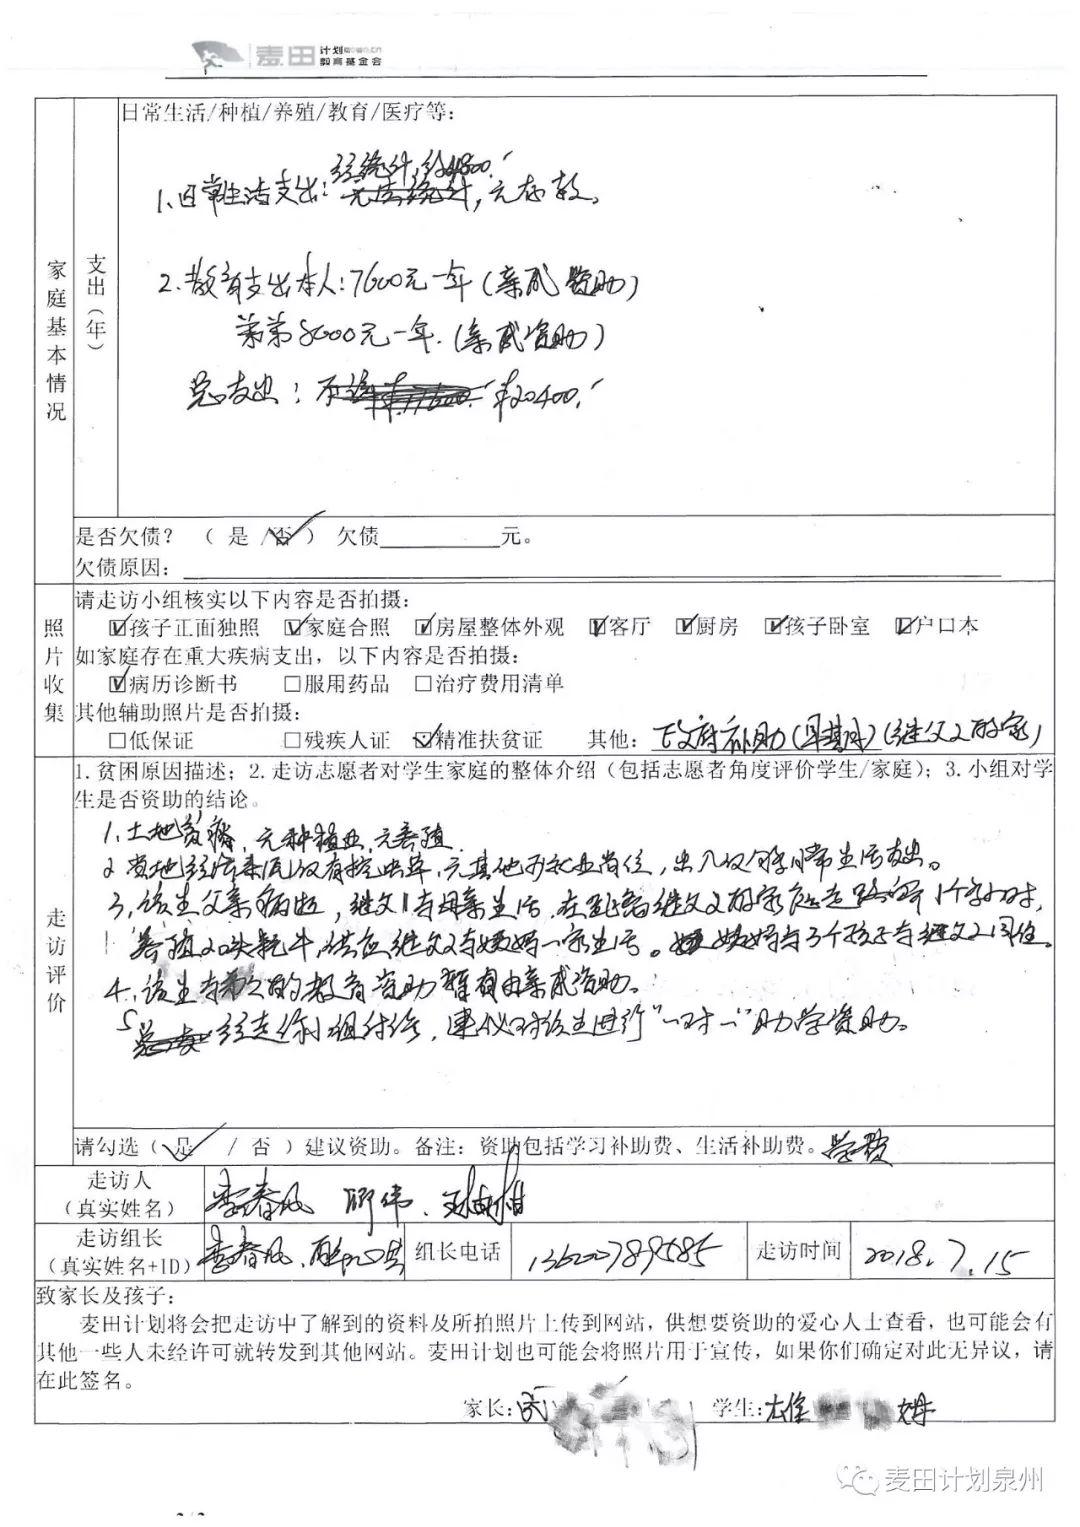 麦田 计划
教育基金会
日常生活/种植/养殖/教育/医疗等：
经统计，约4800.
1、日常生活支出：无法统计，无存款。
2、教育支出本人：7600元一年（亲戚资助）
弟弟8000元一年.（亲戚资助）
总支出： ¥20400.
家庭基本情况
支出（年）
是否欠债？ （ 是 /否 ） 欠债 元。
欠债原因：
照片收集
请走访小组核实以下内容是否拍摄：
☑孩子正面独照 ☑家庭合照 ☑房屋整体外观 ☑客厅 ☑厨房 ☑孩子卧室 ☑户口本
如家庭存在重大疾病支出，以下内容是否拍摄：
☑病历诊断书 □服用药品 □治疗费用清单
其他辅助照片是否拍摄：
□低保证 □残疾人证 ☑精准扶贫证 其他： 政府补助（早期）（继父2的家）
走访评价
1.贫困原因描述；2.走访志愿者对学生家庭的整体介绍（包括志愿者角度评价学生/家庭）；3.小组对学
生是否资助的结论。
1、土地贫瘠，无种植业，无养殖
2 当地经济来源仅有挖虫草，无其他的就业岗位， 日常生活支出。
3、该生父亲病逝，继父1与母亲生活，在 继父2的家庭走路需1个小时，
养殖20头牦牛，供应继父2与 一家生活。 与3个孩子与继父2同住
4、该生与 的教育资助暂有由亲戚资助。
5 经走访小组讨论，建议对该生进行“一对一”助学资助。
请勾选（ 是 / 否 ）建议资助。备注：资助包括学习补助费、生活补助费。
走访人
（真实姓名）
李春风
走访组长
（真实姓名+ID）
李春风、
组长电话
13600789585
走访时间
2018.7.15
致家长及孩子：
麦田计划将会把走访中了解到的资料及所拍照片上传到网站，供想要资助的爱心人士查看，也可能会有
其他一些人未经许可就转发到其他网站。麦田计划也可能会将照片用于宣传，如果你们确定对此无异议，请
在此签名。
家长： 学生： 姆
麦田计划泉州